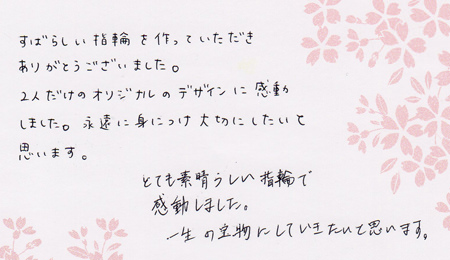 すばらしい指輪を作っていただき
ありがとうございました。
2人だけのオリジナルのデザインに感動
しました。永遠に身につけ大切にしたいと
思います。
とても素晴らしい指輪で
感動しました。
一生の宝物にしていきたいと思います。